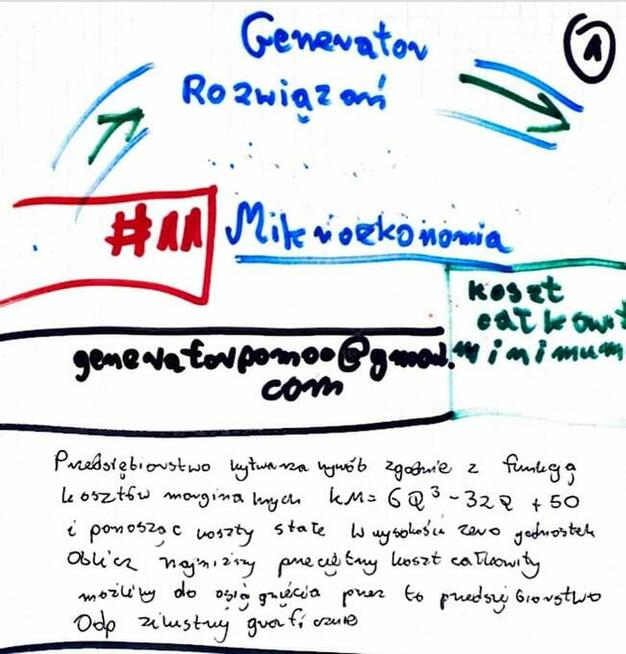 Generator
1
Rozwiązań
#11 Mikroekonomia
koszt
całkowit
minimum
generatorpomoc@gmail.
com
Przedsiębiorstwo wytwarza wyrób zgodnie z funkcją
kosztów marginalnych KM= 6Q³ - 32Q + 50
i ponosząc koszty stałe w wysokości zero jednostek
Oblicz najniższy przeciętny koszt całkowity
możliwy do osiągnięcia przez to przedsiębiorstwo
Odp zilustruj graficznie